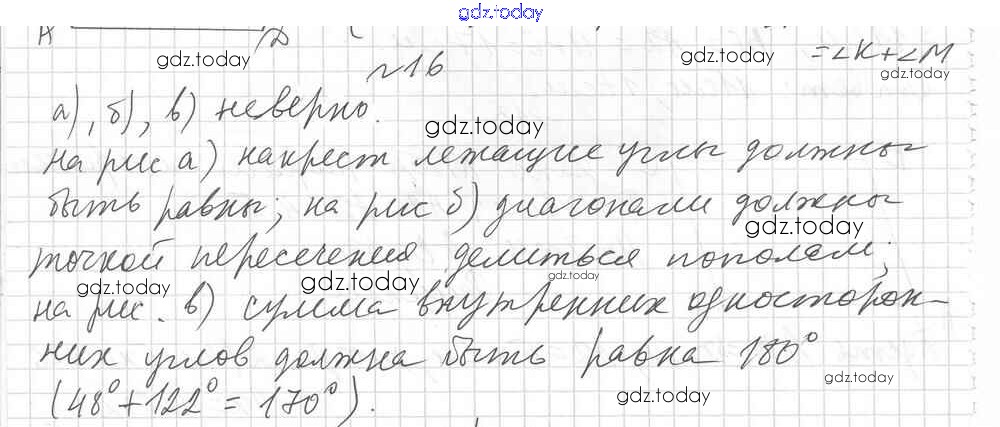 gdz.today
A D
gdz.today
gdz.today
= ∠K + ∠M
gdz.today
№16
а), б), в) неверно.
gdz.today
на рис а) накрест лежащие углы должны
быть равны; на рис б) диагонали должны
gdz.today
точкой пересечения делиться пополам;
gdz.today
gdz.today
gdz.today
на рис. в) сумма внутренних односторон-
них углов должна быть равна 180°
gdz.today
(48° + 122° = 170°).
gdz.today